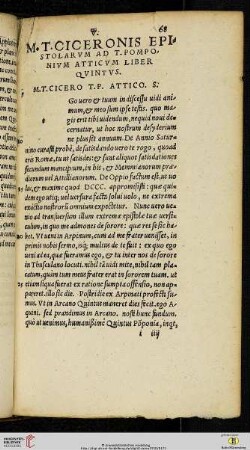 V. 68
M. T. CICERONIS EPI
STOLARVM AD T. POMPO
NIVM ATTICVM LIBER
QVINTVS.
M. T. CICERO T. P. ATTICO. S.
Go uero & tuum in discessu uidi ani
mum, & meo sum ipse testis. quo ma
gis erit tibi uidendum, ne quid noui de
cernatur, ut hoc nostrum desyderium
ne plus sit annuum. De Annio Satur
nino curasti probè. de satisdando uero te rogo, quoad
eris Romæ, tu ut satisdes: & sunt aliquot satisdationes
secundum mancipium, in his, & Memmianorum prædi
orum uel Atilianorum. De Oppio factum est, ut uo
lo, & maxime quod DCCC. approuisisti: quæ qui
dem ego utiq; uel uersura facta solui uolo, ne extrema
exactio nostrorum nominum expectetur. Nunc uenio
ad transuersum illum extremæ epistolæ tuæ uersi
culum, in quo me admones de sorore: quæ res se sic ha
bet. Vt ueni in Arpinum, cum ad me frater uenisset, in
primis nobis sermo, isq; multus de te fuit: ex quo ego
ueni ad ea, quæ fueramus ego, & tu inter nos de sorore
in Thusculano locuti. nihil tàm mite, nihil tàm pla
catum, quàm tum meus frater erat in sororem tuam. ut
etiam si qua fuerat ex ratione sumptu offensio, non ap
pareret. ille sic die. Postridie ex Arpinati profecti su
mus. Vt in Arcano Quintus maneret dies fecit. ego A-
quini. sed prandimus in Arcano. nosti hunc fundum.
quò ut uenimus, humanissimè Quintus Pōponia, inqt,
i iiij